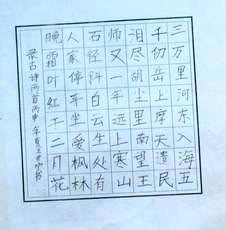 三万里河东入海五
千仞岳上摩天遗民
泪尽胡尘里南望王
师又一年远上寒山
石径斜白云生处有
人家停车坐爱枫林
晚霜叶红于二月花
录古诗两首丙申年夏